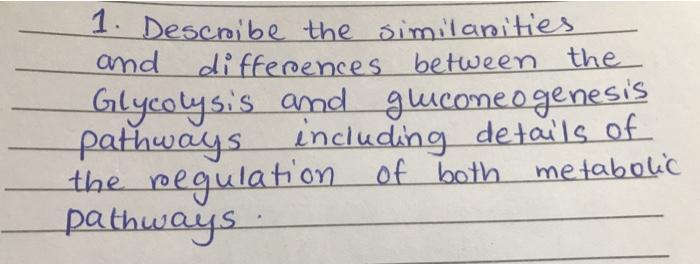 1. Describe the similarities
and differences between the
Glycolysis and gluconeogenesis
pathways including details of
the regulation of both metabolic
pathways.